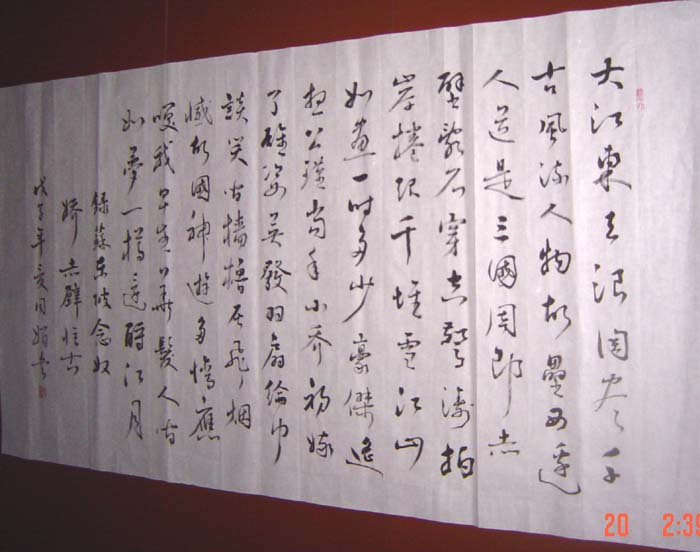 大江東去浪淘盡千
古風流人物故壘西邊
人道是三國周郎赤
壁亂石穿空驚濤拍
岸捲起千堆雪江山
如畫一時多少豪傑遙
想公瑾當年小喬初嫁
了雄姿英發羽扇綸巾
談笑间檣櫓灰飛烟
滅故國神遊多情應
我早生華髮人间
如夢一樽還酹江月
録蘇東坡念奴
嬌赤壁怀古
戊子年夏娟書
20 2:39